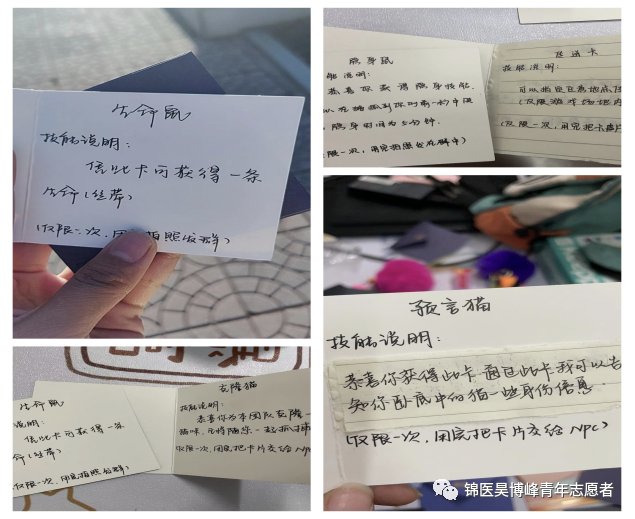 生命鼠
技能说明：
凭此卡可获得一条
生命（丝带）
（仅限一次，用完拍照发群）
隐身鼠
能说明：
恭喜你获得隐身技能，
隐身时间为5分钟，
限一次，用完拍照发在群中）
传送卡
技能说明：
可以指定任意地点
（仅限一次，用完把卡片
生命鼠
说明：
凭此卡可获得一条
命（丝带）
仅限一次，用完拍照发群）
克隆猫
技能说明：
恭喜你为本团队克隆一
猫咪，
仅限一次，用完把卡片交给NPC
预言猫
技能说明：
恭喜你获得此卡，通过此卡我可以告
知你卧底中的猫一些身份信息．
（仅限一次，用完把卡片交给NPC）
锦医昊博峰青年志愿者